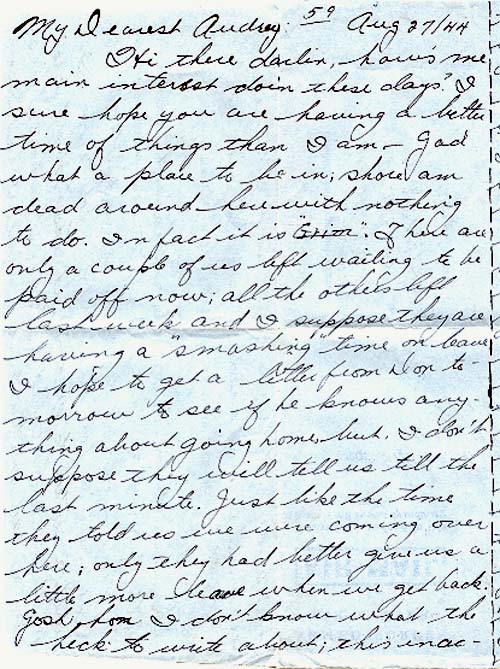 My Dearest Audrey: 59 Aug 27/44
Hi there darlin, how's me
main interest doin these days? I
sure hope you are having a better
time of things than I am — Gad
what a place to be in; shore am
dead around here with nothing
to do. In fact it is "Grim". There are
only a couple of us left waiting to be
paid off now; all the others left
last week and I suppose they are
having a "smashing" time on leave
I hope to get a letter from Don to-
morrow to see if he knows any-
thing about going home, but. I don't
suppose they will tell us till the
last minute. Just like the time
they told us we were coming over
here; only they had better give us a
little more leave when we get back.
Gosh hon I don't know what the
heck to write about; this inac-